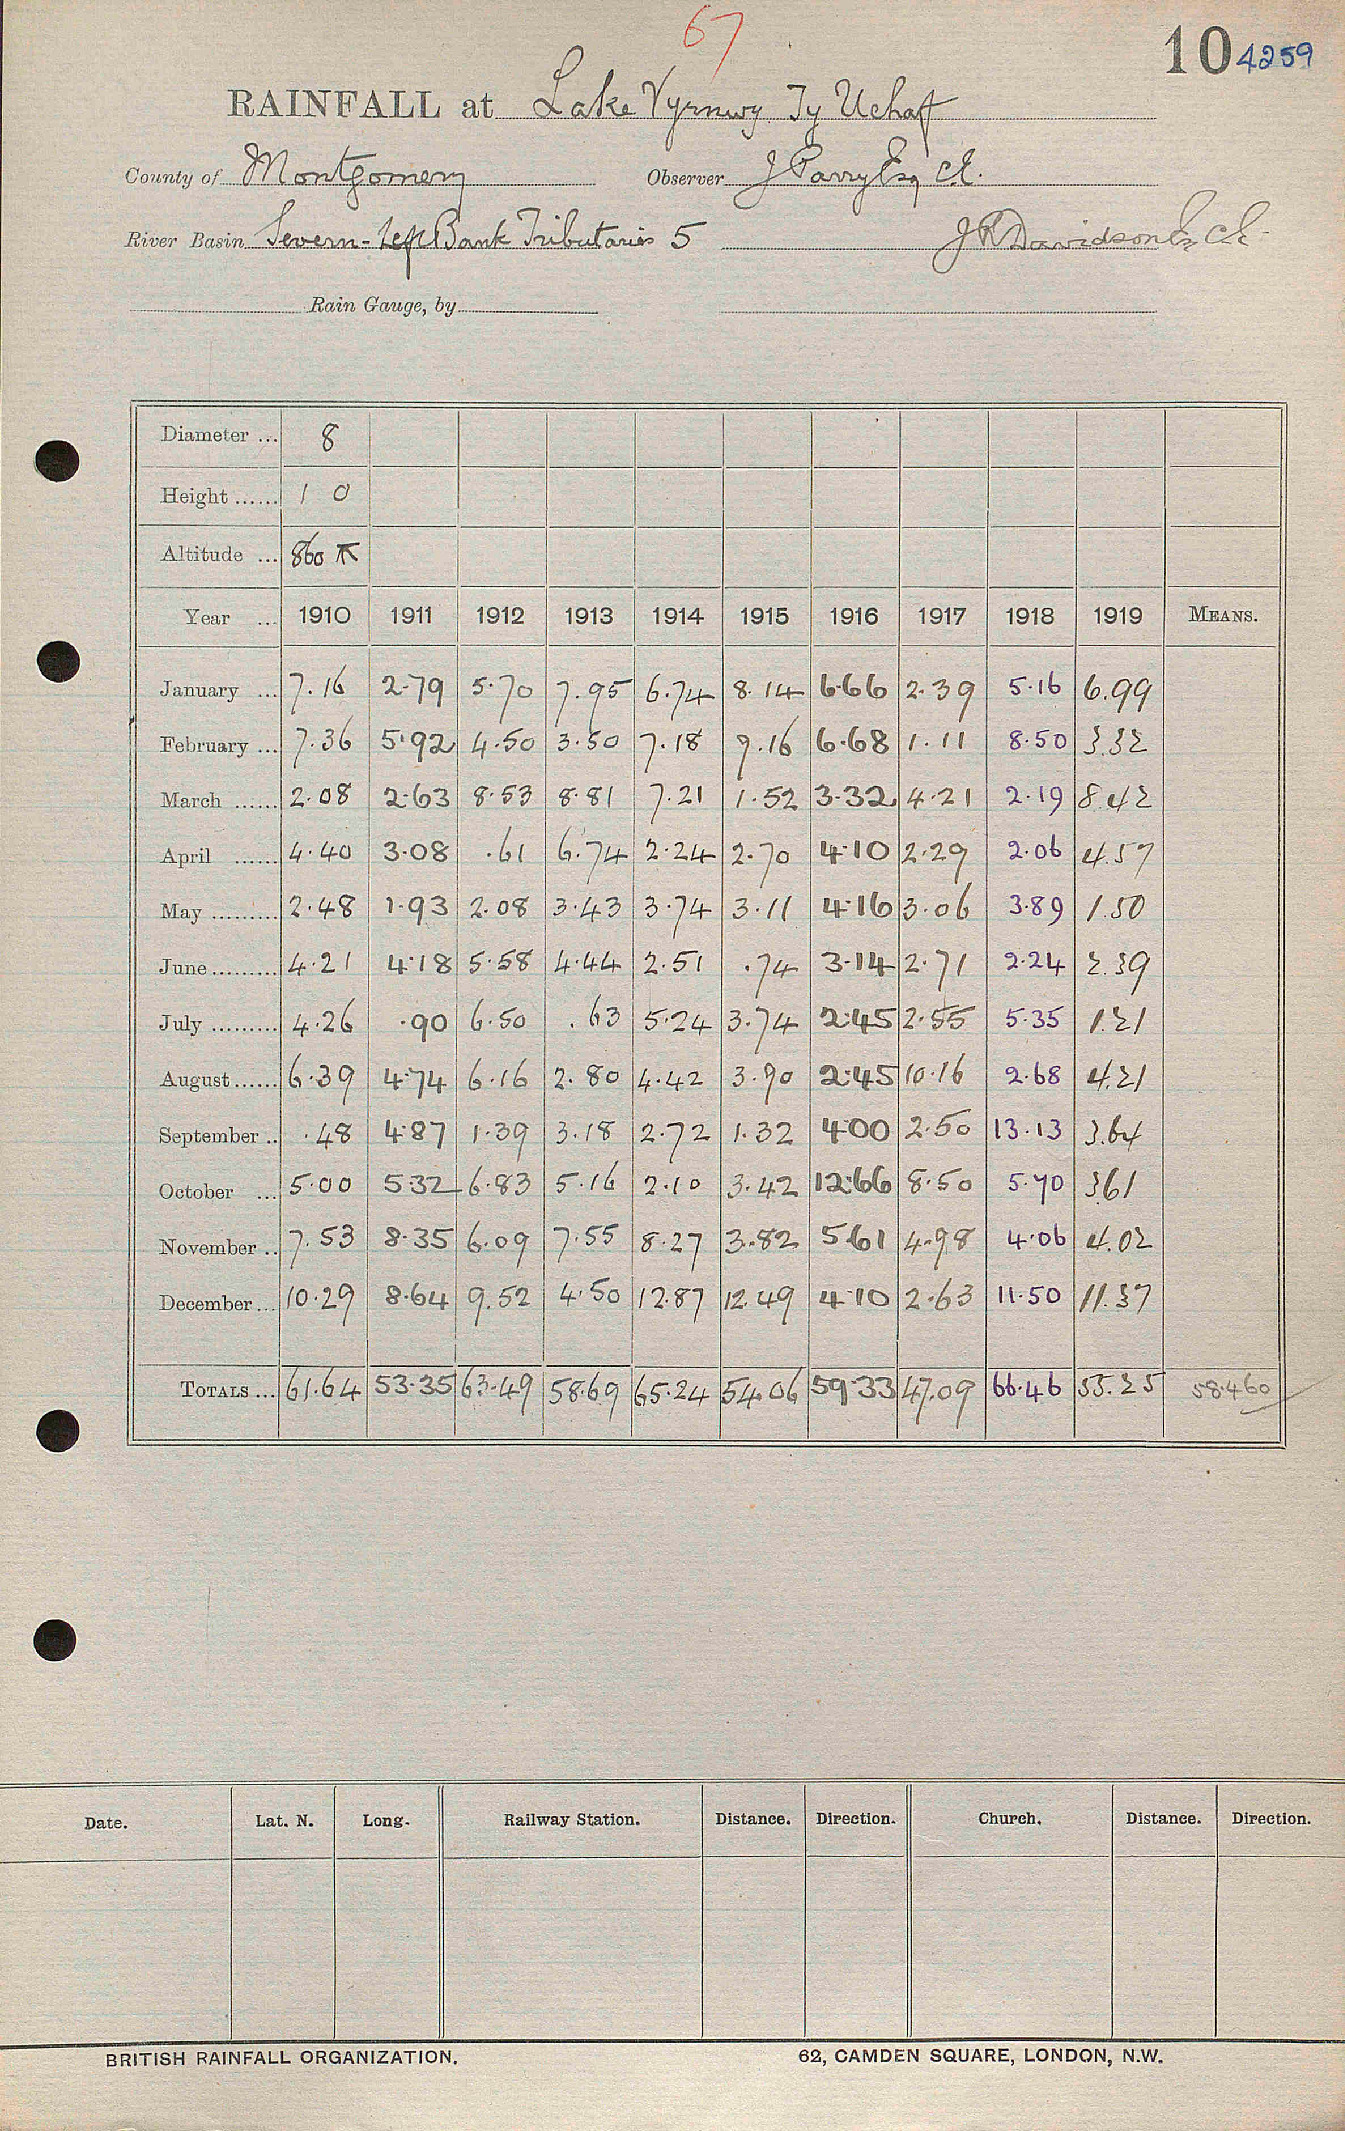 67
10 4259
RAINFALL at Lake Vyrnwy Ty Uchaf
County of Montgomery Observer J Parry Esq C.E.
River Basin Severn - Left Bank Tributaries 5 J R Davidson Esq C.E.
Rain Gauge, by
Diameter ... 8
Height ...... 1 0
Altitude ... 860
Year ... 1910 1911 1912 1913 1914 1915 1916 1917 1918 1919 MEANS.
January ... 7.16 2.79 5.70 7.95 6.74 8.14 6.66 2.39 5.16 6.99
February ... 7.36 5.92 4.50 3.50 7.18 9.16 6.68 1.11 8.50 3.32
March ...... 2.08 2.63 8.53 8.81 7.21 1.52 3.32 4.21 2.19 8.42
April ...... 4.40 3.08 .61 6.74 2.24 2.70 4.10 2.29 2.06 4.57
May ......... 2.48 1.93 2.08 3.43 3.74 3.11 4.16 3.06 3.89 1.50
June ......... 4.21 4.18 5.58 4.44 2.51 .74 3.14 2.71 2.24 2.39
July ......... 4.26 .90 6.50 .63 5.24 3.74 2.45 2.55 5.35 1.21
August ...... 6.39 4.74 6.16 2.80 4.42 3.90 2.45 10.16 2.68 4.21
September .. .48 4.87 1.39 3.18 2.72 1.32 4.00 2.50 13.13 3.64
October ... 5.00 5.32 6.83 5.16 2.10 3.42 12.66 8.50 5.70 3.61
November .. 7.53 8.35 6.09 7.55 8.27 3.82 5.61 4.98 4.06 4.02
December ... 10.29 8.64 9.52 4.50 12.87 12.49 4.10 2.63 11.50 11.37
TOTALS ... 61.64 53.35 63.49 58.69 65.24 54.06 59.33 47.09 66.46 55.25 58.460
Date. Lat. N. Long. Railway Station. Distance. Direction. Church. Distance. Direction.
BRITISH RAINFALL ORGANIZATION. 62, CAMDEN SQUARE, LONDON, N.W.